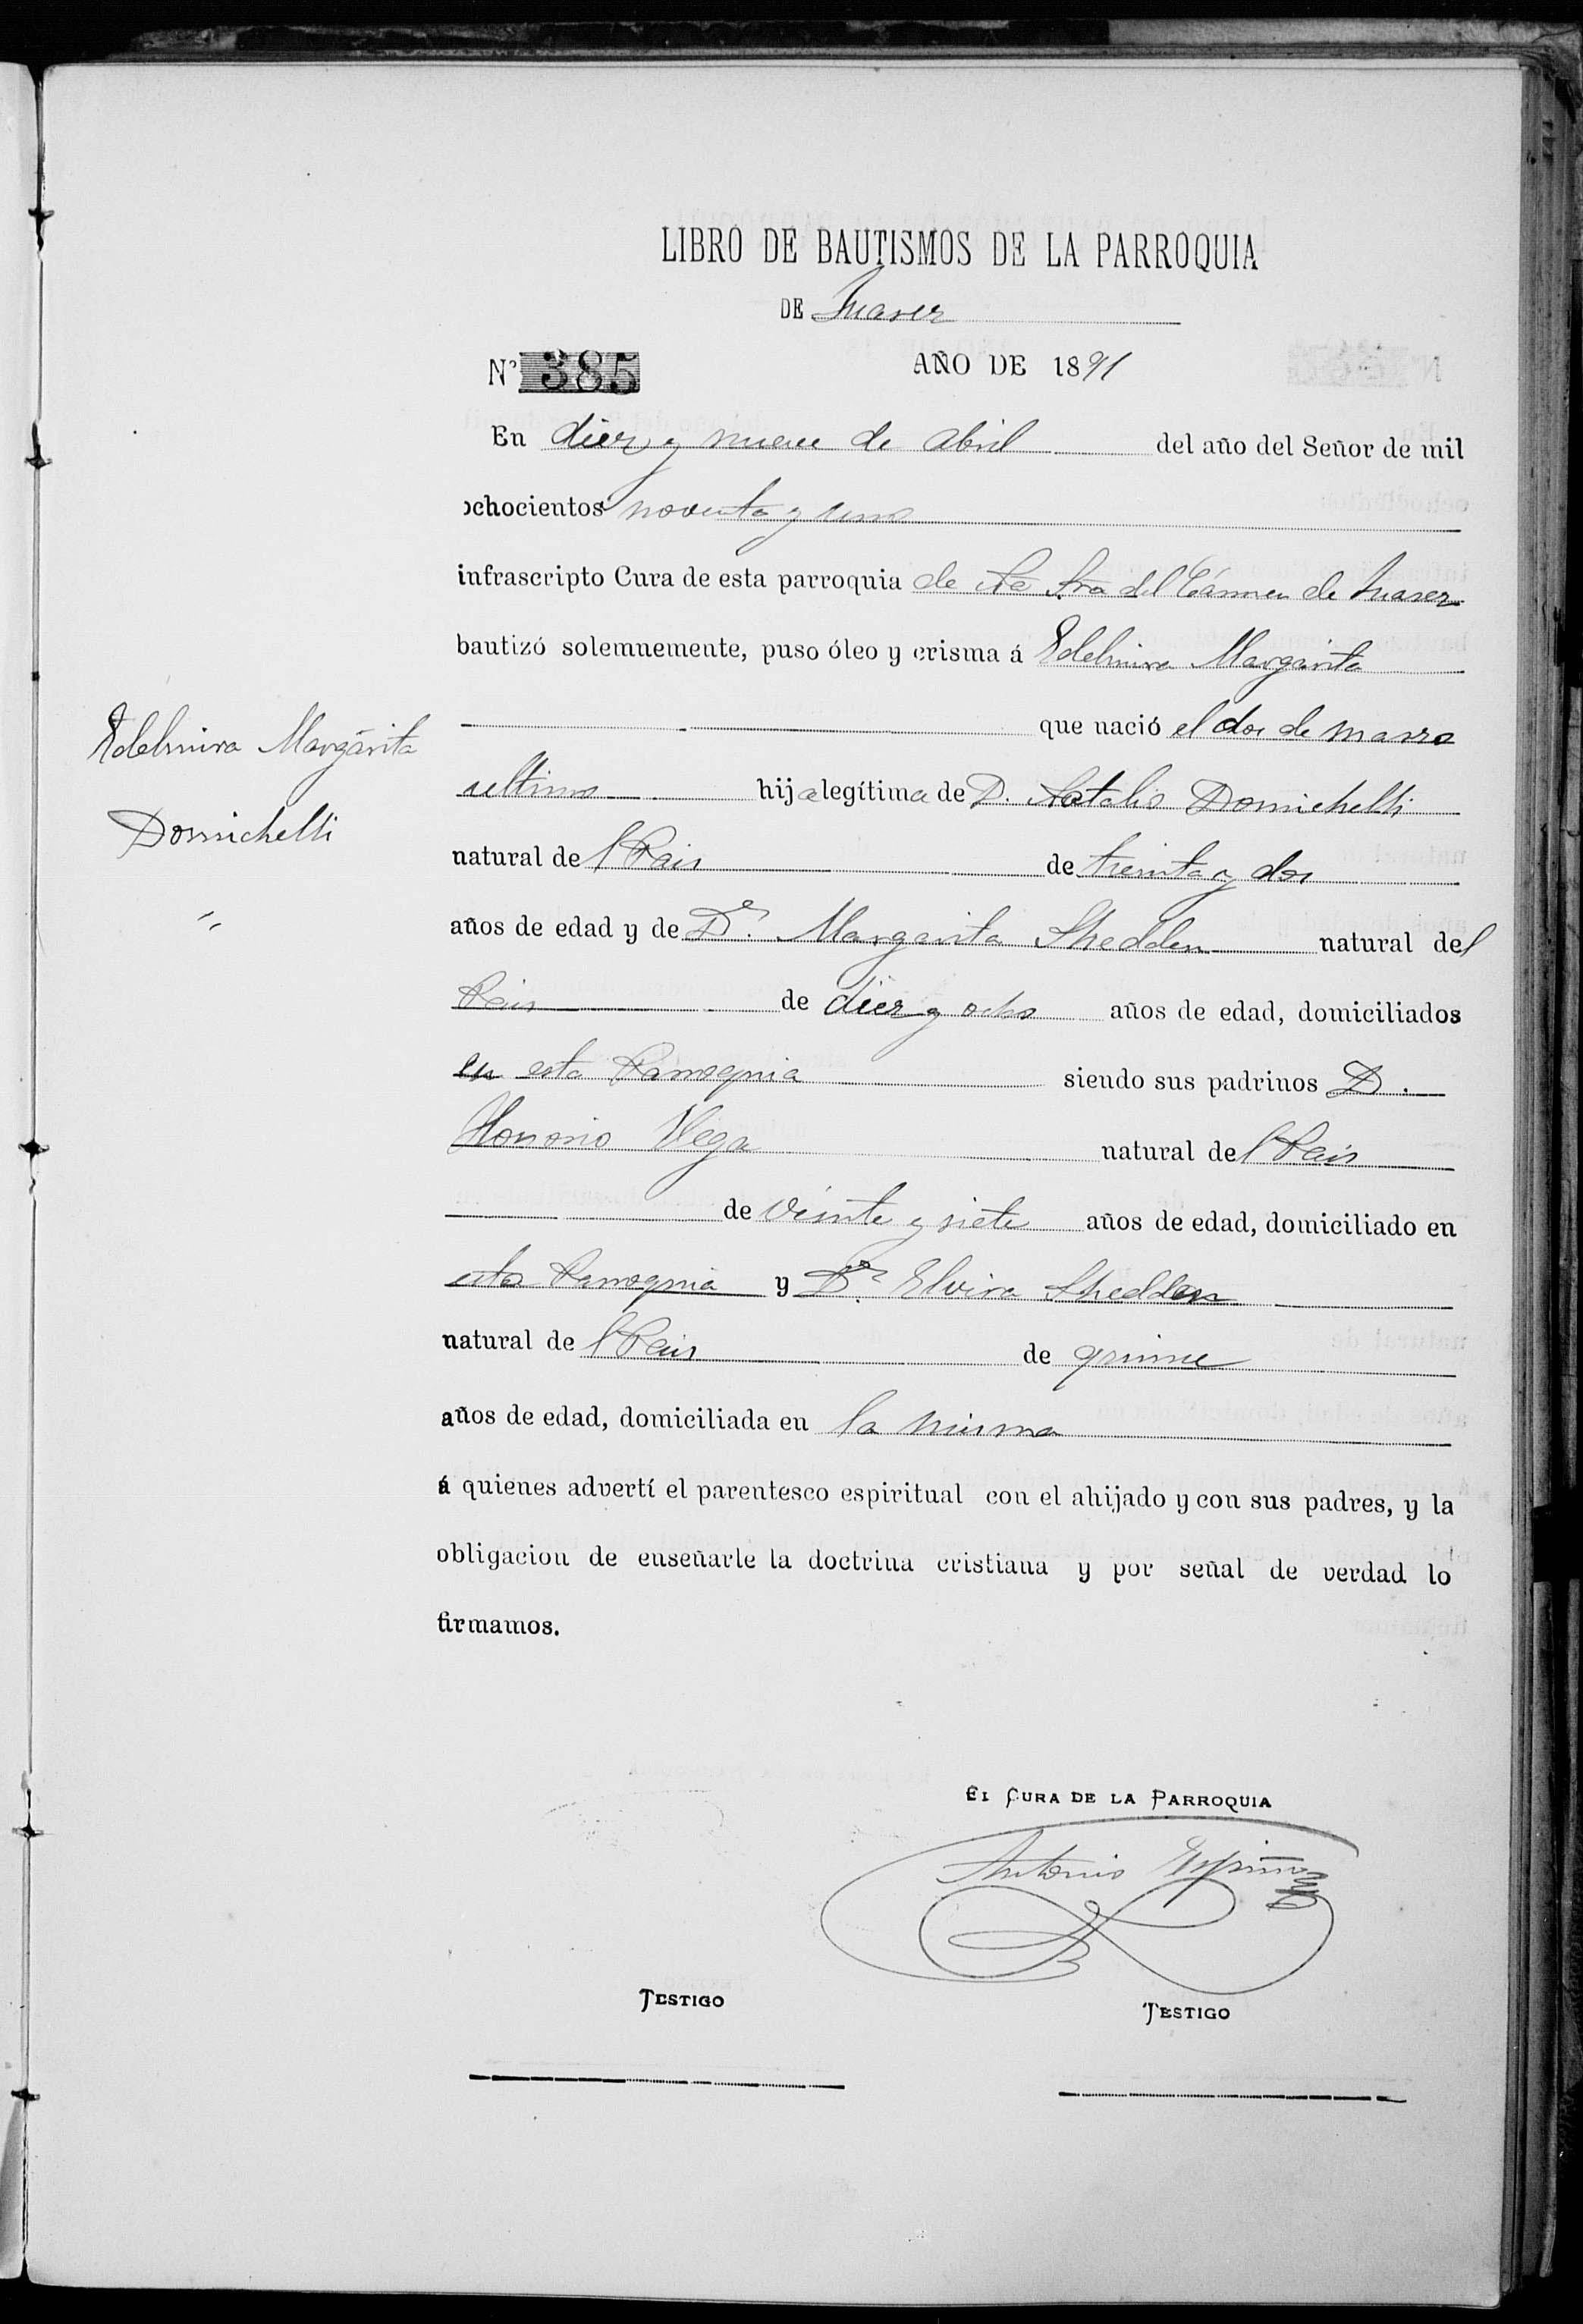 LIBRO DE BAUTISMOS DE LA PARROQUIA
DE Juarez
Nº 385 AÑO DE 1891
En diez y nueve de Abril del año del Señor de mil
ochocientos noventa y uno
infrascripto Cura de esta parroquia de Na Sra del Cármen de Juarez
bautizó solemnemente, puso óleo y crisma á Edelmira Margarita
que nació el dos de marzo
Edelmira Margarita
Domichelli
ultimo hija legítima de D. Natalio Domichelli
natural del Pais de treinta y dos
años de edad y de Da. Margarita Shedden natural del
Pais de diez y ocho años de edad, domiciliados
en esta Parroquia siendo sus padrinos D.
Honorio Vega natural del Pais
de veinte y siete años de edad, domiciliado en
esta Parroquia y Da. Elvira Shedden
natural del Pais de quince
años de edad, domiciliada en la misma
á quienes advertí el parentesco espiritual con el ahijado y con sus padres, y la
obligacion de enseñarle la doctrina cristiana y por señal de verdad lo
firmamos.
EL CURA DE LA PARROQUIA
Antonio Espinosa
TESTIGO TESTIGO